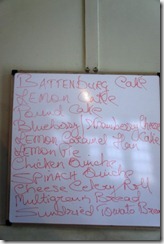 BATTENBURG Cake
LEMON Cake
Pound Cake
Blueberry Strawberry Cheese
LEMON Caramel Flan
LEMON Pie
Chicken Quiche
SPINACH Quiche
Cheese Celery Roll
Multigrain Bread
Sundried Tomato Bread